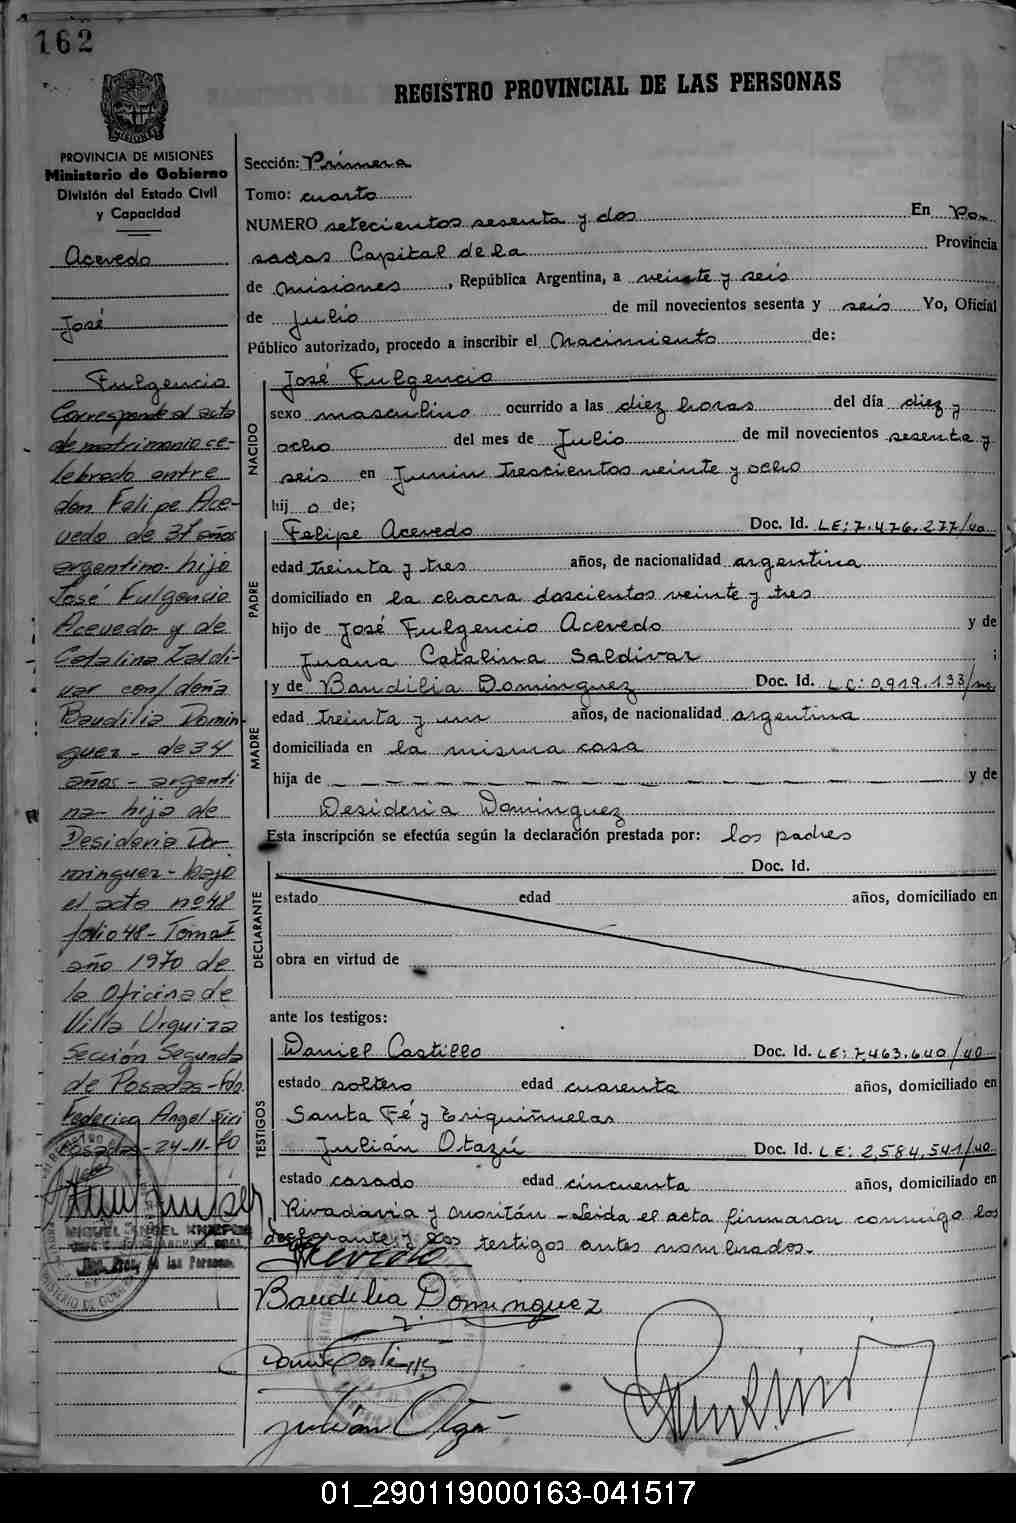 162
REGISTRO PROVINCIAL DE LAS PERSONAS
MISIONES
PROVINCIA DE MISIONES
Ministerio de Gobierno
División del Estado Civil
y Capacidad
Acevedo
José
Fulgencio
Corresponde al acta
de matrimonio ce-
lebrado entre
don Felipe Ace-
vedo de 37 años
argentino hijo
José Fulgencio
Acevedo y de
Catalina Zaldi-
var con/doña
Baudilia Domin-
guez - de 34
años - argenti
na - hija de
Desideria Do-
minguez - bajo
el acta nº 48
folio 48 - Tomo
año 1970 de
la Oficina de
Villa Urquiza
Sección Segunda
de Posadas - Fdo.
Federico Angel
Posadas - 24-11-70
MIGUEL ANGEL
de las Personas
Sección: Primera
Tomo: cuarto
NUMERO setecientos sesenta y dos En Po-
sadas Capital de la Provincia
de Misiones, República Argentina, a veinte y seis
de Julio de mil novecientos sesenta y seis Yo, Oficial
Público autorizado, procedo a inscribir el Nacimiento de:
NACIDO
José Fulgencio
sexo masculino ocurrido a las diez horas del día diez y
ocho del mes de Julio de mil novecientos sesenta y
seis en Junin trescientos veinte y ocho
hij o de;
PADRE
Felipe Acevedo Doc. Id. LE: 7.476.277/40
edad treinta y tres años, de nacionalidad argentina
domiciliado en la chacra doscientos veinte y tres
hijo de José Fulgencio Acevedo y de
Juana Catalina Saldivar ;
MADRE
y de Baudilia Dominguez Doc. Id. LC: 0,919.133/
edad treinta y un años, de nacionalidad argentina
domiciliada en la misma casa
hija de — — — — — — — — y de
Desideria Dominguez
Esta inscripción se efectúa según la declaración prestada por: los padres
DECLARANTE
Doc. Id.
estado edad años, domiciliado en
obra en virtud de
ante los testigos:
TESTIGOS
Daniel Castillo Doc. Id. LE: 7.463.640/40
estado soltero edad cuarenta años, domiciliado en
Santa Fé y Eriquiñuelas
Julián Otazú Doc. Id. LE: 2,584,541/40
estado casado edad cincuenta años, domiciliado en
Rivadavia y Moritán - Leida el acta firmaron conmigo los
declarantes y los testigos antes nombrados.-
Acevedo
Baudilia Dominguez
Julián
01_290119000163-041517